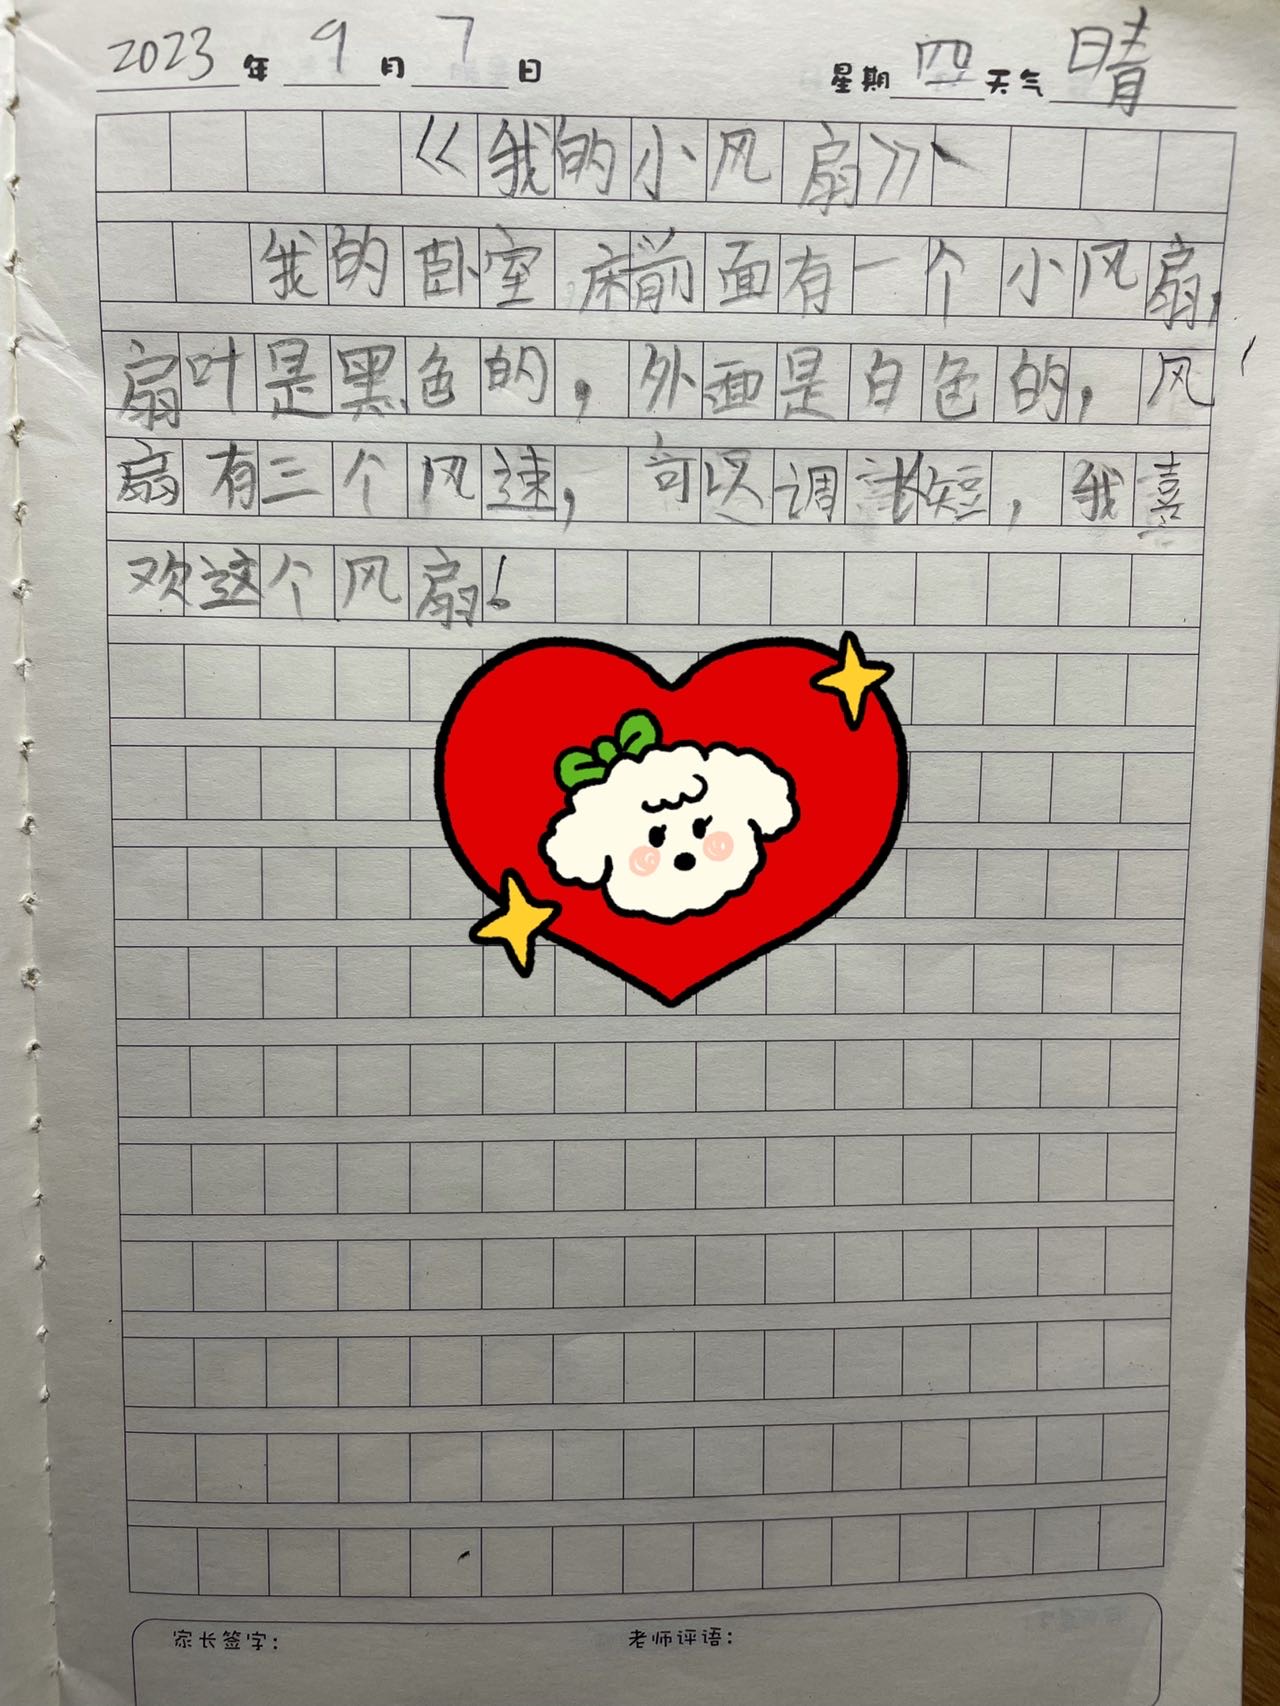 2023年9月7日 星期四天气晴
《我的小风扇》
我的卧室床前面有一个小风扇,
扇叶是黑色的,外面是白色的,风
扇有三个风速,可以调长短,我喜
欢这个风扇!
家长签字: 老师评语: